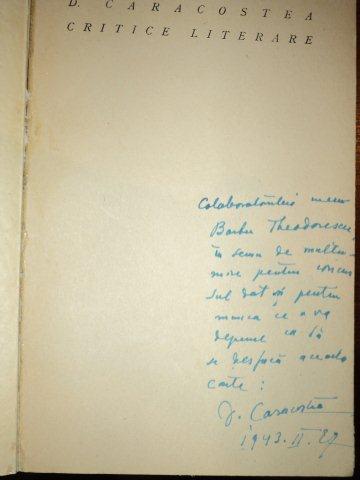 D. CARACOSTEA
CRITICE LITERARE
Colaboratorului meu
Barbu Theodorescu,
în semn de mulțu-
mire pentru concur
sul dat și pentru
munca ce a va
depune ca să
se desfacă această
carte:
D. Caracostea
1943. II.